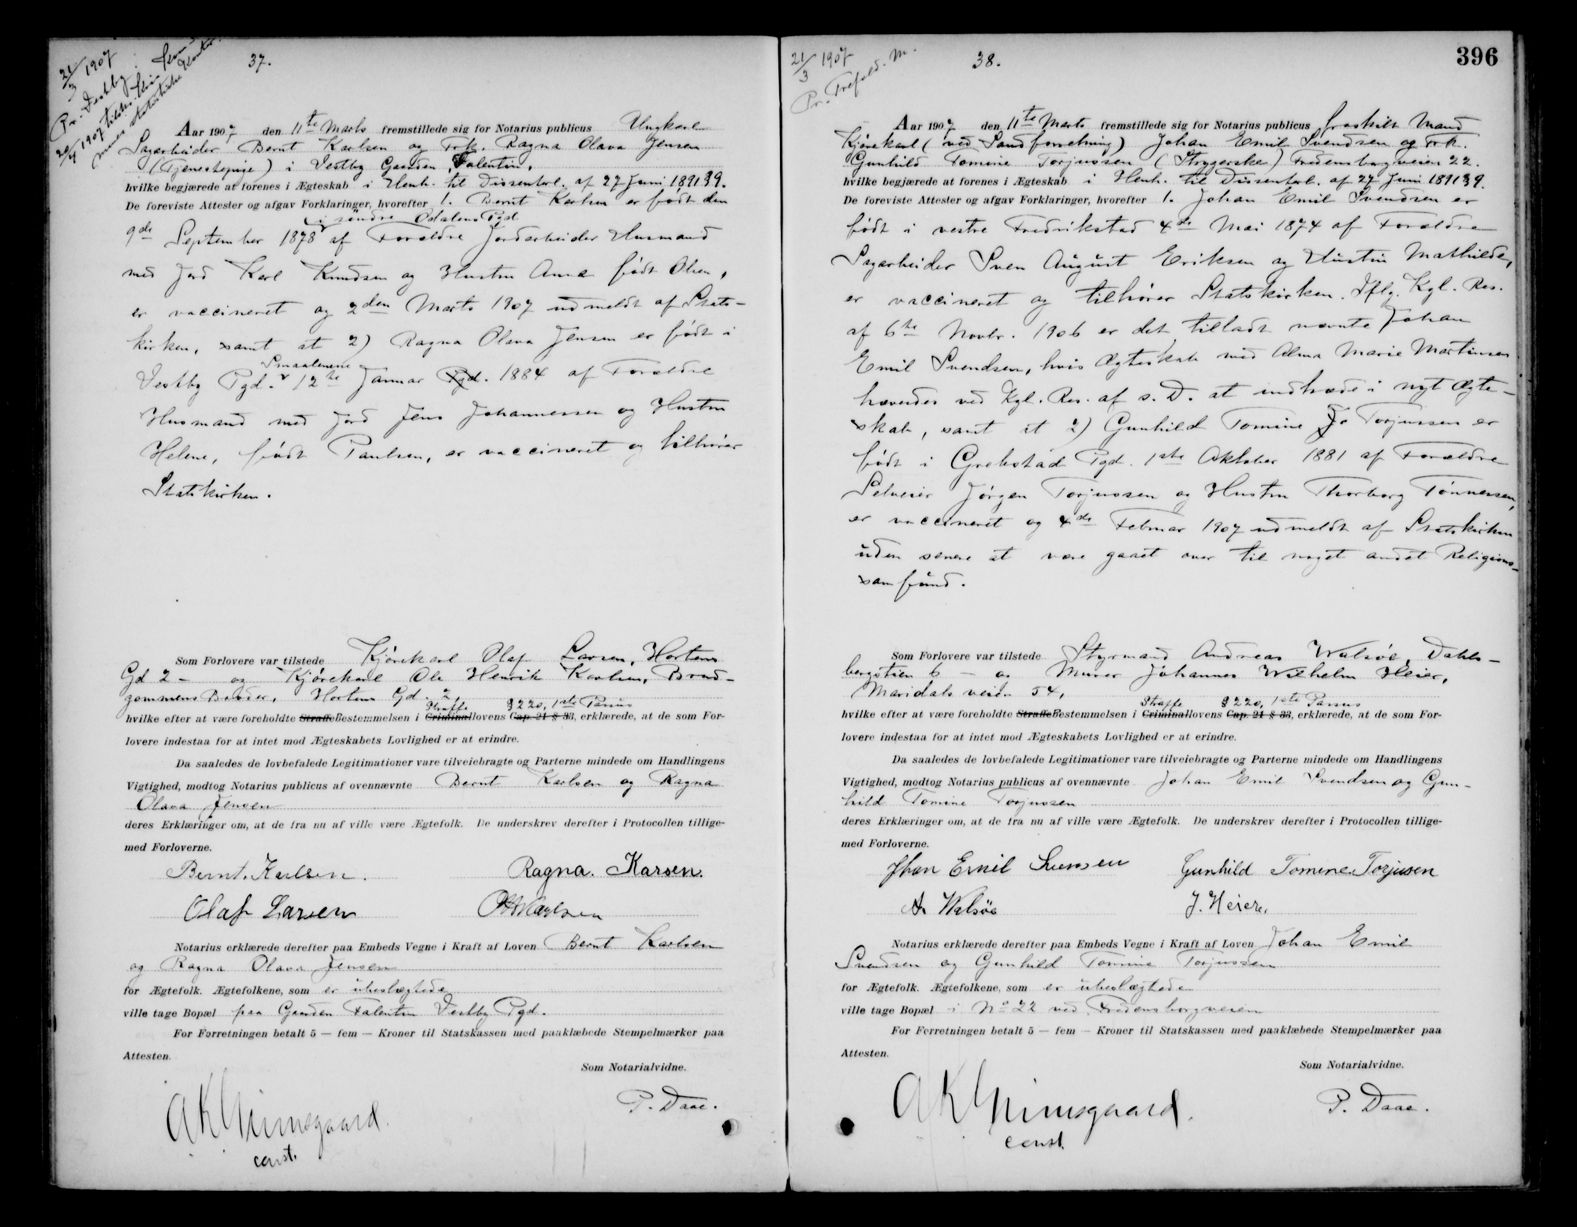 21/3 1907
Pr. Vestby.
37.
Aar 1907 den 11te Marts fremstillede sig for Notarius publicus Ungkarl
Sagarbeider Bernt Karlsen og Frk. Ragna Olava Jensen
(Tjenestepige) i Vestby Gaarden Falentin,
hvilke begjærede at forenes i Ægteskab i Henh. til Dissenterl. af 27 Juni 1891 § 9.
De foreviste Attester og afgav Forklaringer, hvorefter 1. Bernt Karlsen er født den
i søndre Odalens Pgd
9de September 1878 af Forældre Jordarbeider Husmand
med Jord Karl Knudsen og Hustru Anne født Olsen,
er vaccineret og 2den Marts 1907 udmeldt af Stats-
kirken, samt at 2) Ragna Olava Jensen er født i
Smaalenene
Vestby Pgd. 12te Januar Pgd. 1884 af Forældre
Husmand med Jord Jens Johannessen og Hustru
Helene, født Paulsen, er vaccineret og tilhører
Statskirken.
Som Forlovere var tilstede Kjørekarl Olaf Larsen, Hortens
Gd 2 - og Kjørekarl Ole Henrik Karlsen, Brud-
gommens Broder, Hortens Gd. 2
Straffe § 220, 1ste Passus
hvilke efter at være foreholdte StraffeBestemmelsen i Criminallovens Cap. 21 § 33, erklærede, at de som For-
lovere indestaa for at intet mod Ægteskabets Lovlighed er at erindre.
Da saaledes de lovbefalede Legitimationer vare tilveiebragte og Parterne mindede om Handlingens
Vigtighed, modtog Notarius publicus af ovennævnte Bernt Karlsen og Ragna
Olava Jensen
deres Erklæringer om, at de fra nu af ville være Ægtefolk. De underskrev derefter i Protocollen tillige-
med Forloverne.
Bernt. Karlsen. Ragna. Karsen.
Olaf Larsen OHKarlsen
Notarius erklærede derefter paa Embeds Vegne i Kraft af Loven Bernt Karlsen
og Ragna Olava Jensen
for Ægtefolk. Ægtefolkene, som er ubeslægtede
ville tage Bopæl paa Gaarden Falentin Vestby Pgd.
For Forretningen betalt 5 — fem — Kroner til Statskassen med paaklæbede Stempelmærker paa
Attesten.
Som Notarialvidne.
P. Daae.
AKGrimsgaard.
const.
21/3 1907
Pr. Trefold. M.
38.
396
Aar 1907 den 11te Marts fremstillede sig for Notarius publicus fraskilt Mand
Kjørekarl (ved Sandforretning) Johan Emil Svendsen og Frk.
Gunhild Tomine Torjussen (Strygerske) Fredensborgveien 22.
hvilke begjærede at forenes i Ægteskab i Henh. til Dissenterl. af 27 Juni 1891 § 9.
De foreviste Attester og afgav Forklaringer, hvorefter 1. Johan Emil Svendsen er
født i vestre Fredrikstad 4de Mai 1874 af Forældre
Sagarbeider Sven August Eriksen og Hustru Mathilde,
er vaccineret og tilhører Statskirken. Iflg. Kgl. Res.
af 6te Novbr. 1906 er det tilladt nævnte Johan
Emil Svendsen, hvis Ægteskab med Alma Marie Martinsen
hævedes ved Kgl. Res. af s. D. at indtræde i nyt Ægte-
skab, samt at 2) Gunhild Tomine Jo Torjussen er
født i Grebstad Pgd. 1ste Oktober 1881 af Forældre
Selveier Jørgen Torjussen og Hustru Thorborg Tønnessen,
er vaccineret og 4de Februar 1907 udmeldt af Statskirken
uden senere at være gaaet over til noget andet Religions-
samfund.
Som Forlovere var tilstede Styrmand Andreas Walsøe, Dahls-
bergstien 6 - og Murer Johannes Wilhelm Heier,
Maridalsveien 54,
Straffe § 220, 1ste Passus
hvilke efter at være foreholdte StraffeBestemmelsen i Criminallovens Cap. 21 § 33, erklærede, at de som For-
lovere indestaa for at intet mod Ægteskabets Lovlighed er at erindre.
Da saaledes de lovbefalede Legitimationer vare tilveiebragte og Parterne mindede om Handlingens
Vigtighed, modtog Notarius publicus af ovennævnte Johan Emil Svendsen og Gun-
hild Tomine Torjussen
deres Erklæringer om, at de fra nu af ville være Ægtefolk. De underskrev derefter i Protocollen tillige-
med Forloverne.
Jhan Emil Svensen Gunhild Tomine Torjusen
A Walsøe J. Heier.
Notarius erklærede derefter paa Embeds Vegne i Kraft af Loven Johan Emil
Svendsen og Gunhild Tomine Torjussen
for Ægtefolk. Ægtefolkene, som er ubeslægtede
ville tage Bopæl i No 22 ved Fredensborgveien
For Forretningen betalt 5 — fem — Kroner til Statskassen med paaklæbede Stempelmærker paa
Attesten.
Som Notarialvidne.
P. Daae.
AKGrimsgaard.
const.